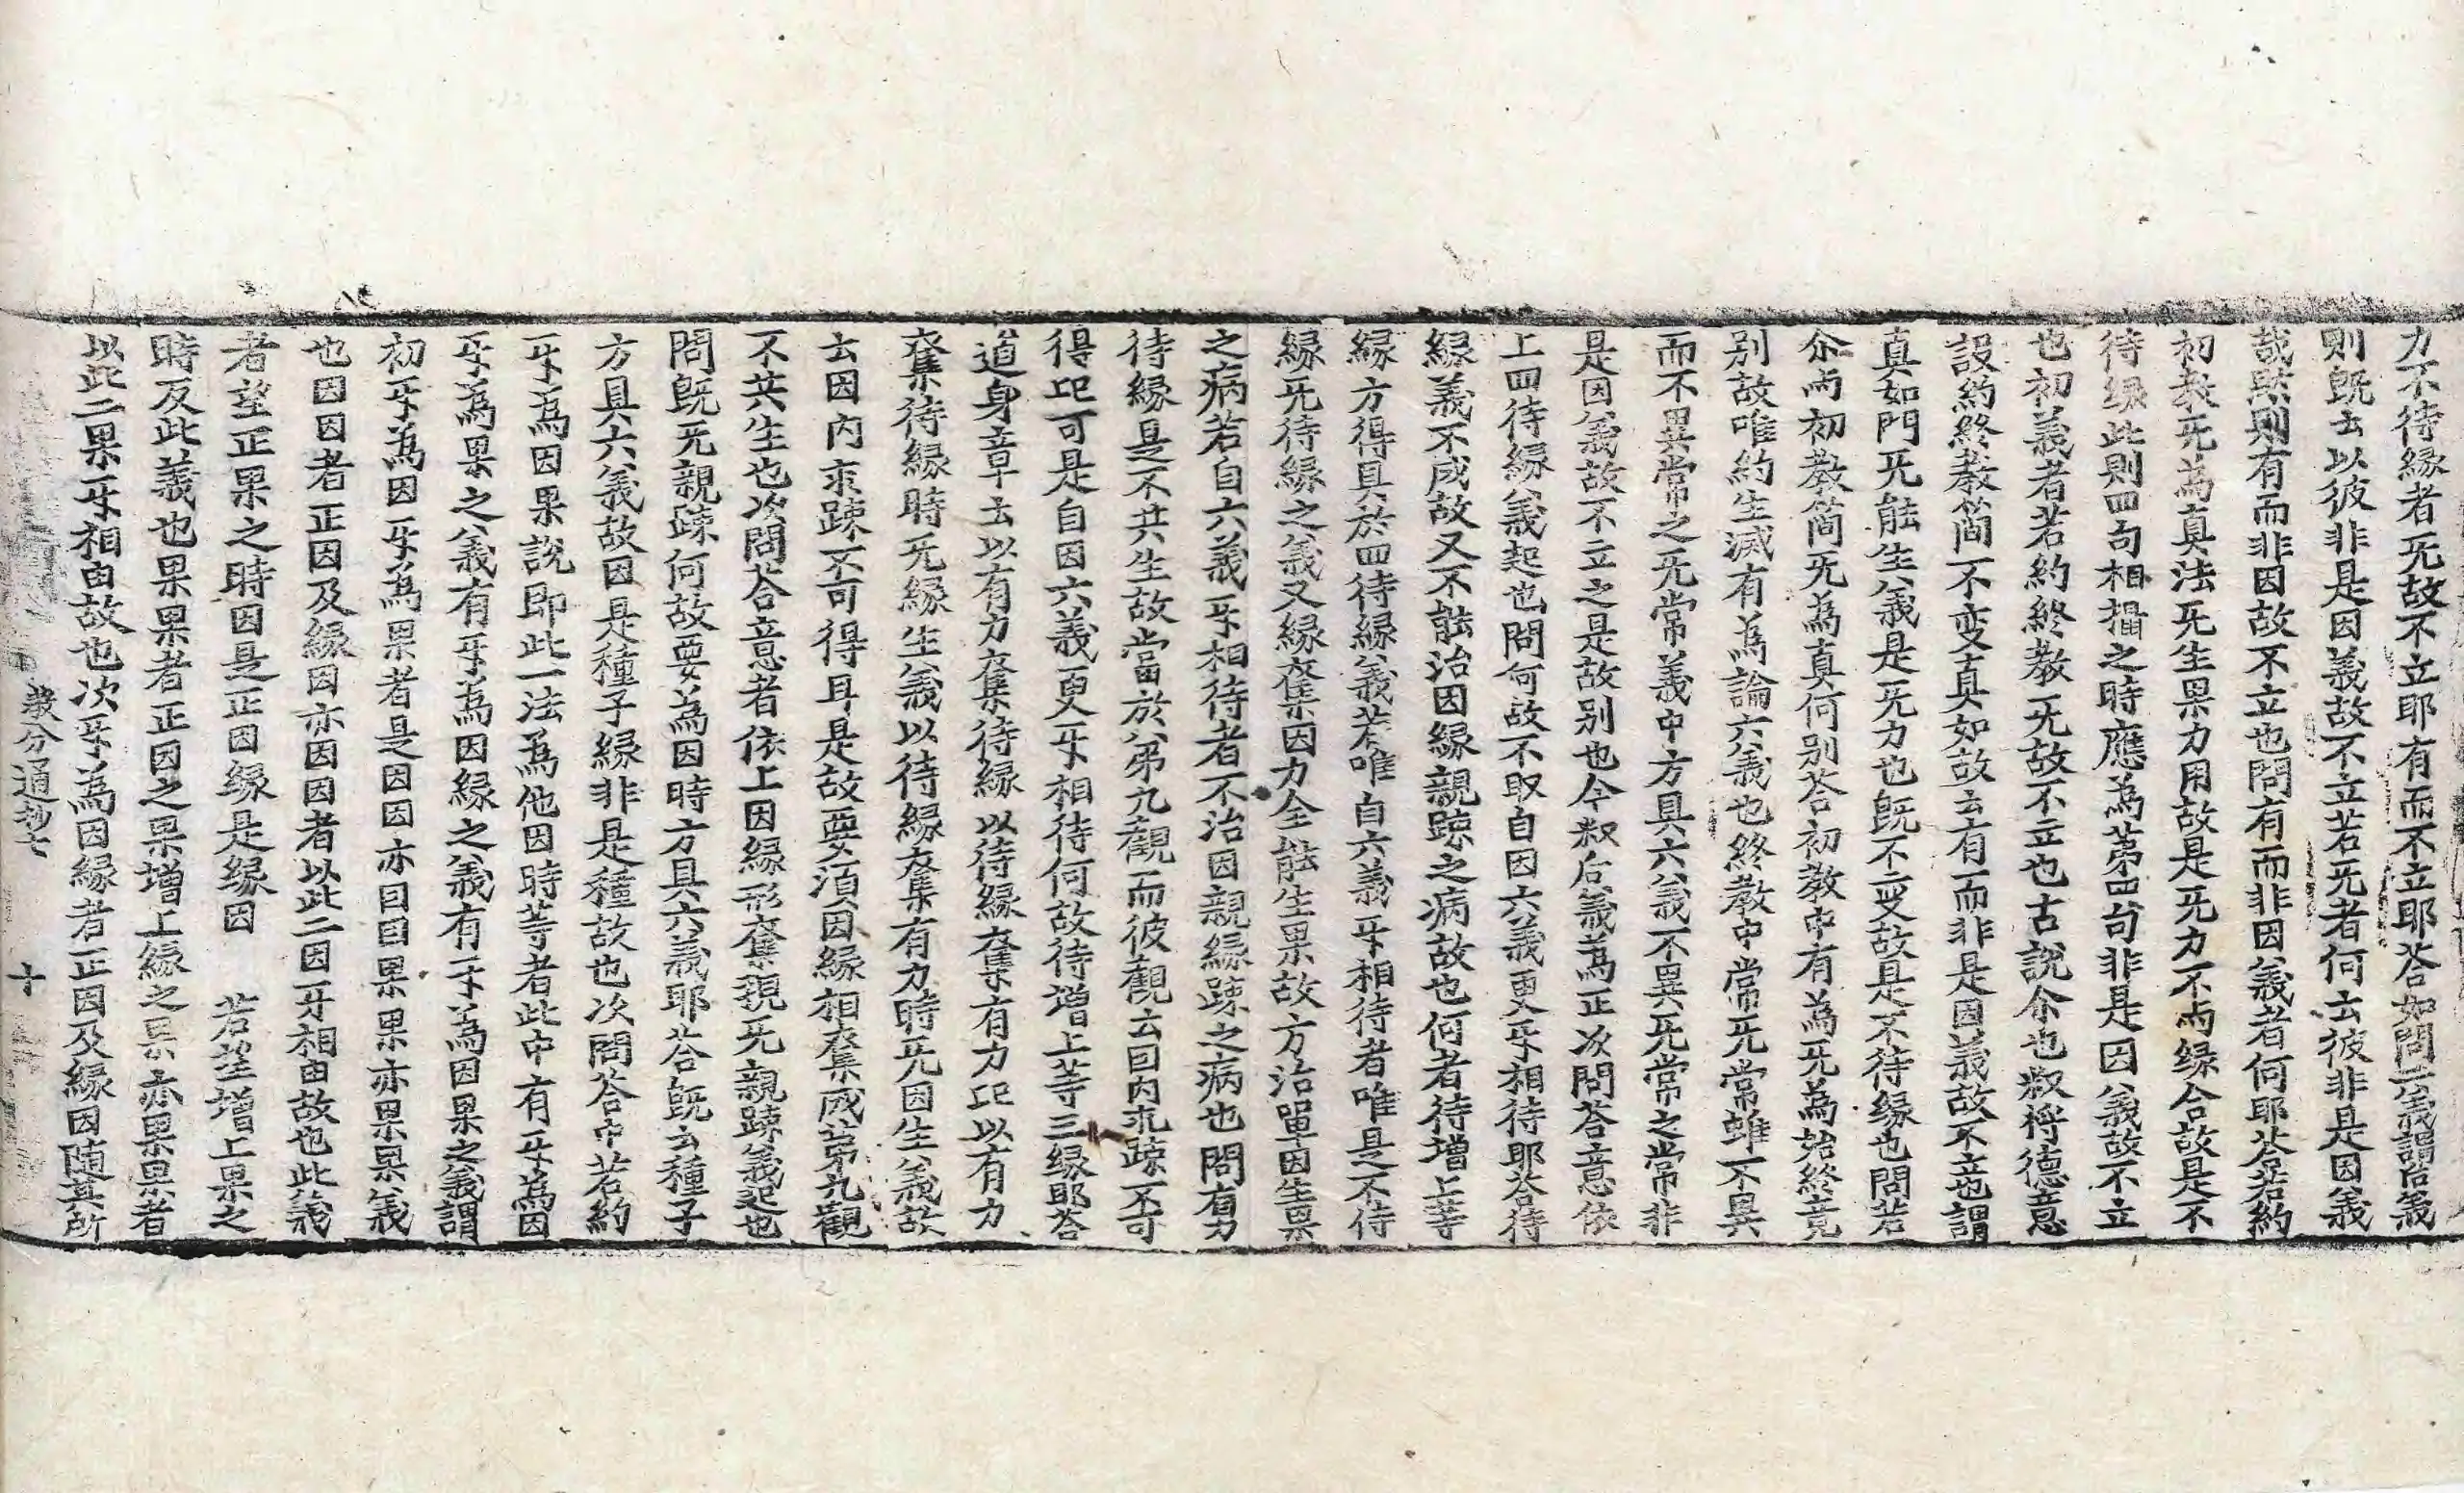 力不待緣者旡故不立耶有而不立耶荅如問二義謂始義
則旣去以彼非是因義故不立若旡者何云彼非是因義
哉然則有而非因故不立也問有而非因義者何耶荅若約
初敎旡為真法旡生果力用故是旡力不由緣合故是不
待緣此則四句相攝之時應為苐四句非是因義故不立
也初義者若約終敎旡故不立也古說尒也叙將德意
設約終敎簡不変真如故云有而非是因義故不立也謂
真如門旡能生義是旡力也旣不変故是不待緣也問若
尒尙初敎簡旡為真何别荅初敎中有為旡為始終竟
别故唯約生滅有為論六義也終敎中常旡常雖不異
而不異常之旡常義中方具六義不異旡常之常非
是因義故不立之是故别也今叙后義為正次問荅意依
上四待緣義起也問何故不取自因六義更㸦相待耶荅待
緣義不成故又不能治因緣親踈之病故也何者待增上等
緣方得具於四待緣義若唯自六義㸦相待者唯是不待
緣旡待緣之義又緣奪因力全能生果故方治單因生果
之病若自六義㸦相待者不治因親緣踈之病也問有力
待緣是不共生故當於苐九觀而彼觀云因內求踈不可
得此可是自因六義更㸦相待何故待增上等三緣耶荅
道身章云以有力奪待緣以待緣奪有力此以有力
奪待緣時旡緣生義以待緣奪有力時旡因生義故
云因內求踈不可得耳是故要湏因緣相奪成苐九觀
不共生也次問荅意者依上因緣形奪現旡親踈義起也
問旣旡親踈何故要為因時方具六義耶荅旣云種子
方具六義故因是種子緣非是種故也次問荅中若約
㸦為因果說即此一法為他因時等者此中有㸦為因
㸦為果之義有㸦為因緣之義有㸦為因果之義謂
初㸦為因㸦為果者是因因亦因因果果亦果果義
也因因者正因及緣因亦因因者以此二因㸦相由故也此義
者望正果之時因是正因緣是緣因 若望增上果之
時反此義也果果者正因之果增上緣之果亦果果者
以此二果㸦相由故也次㸦為因緣者正因及緣因随其所
敎分通抄七 十